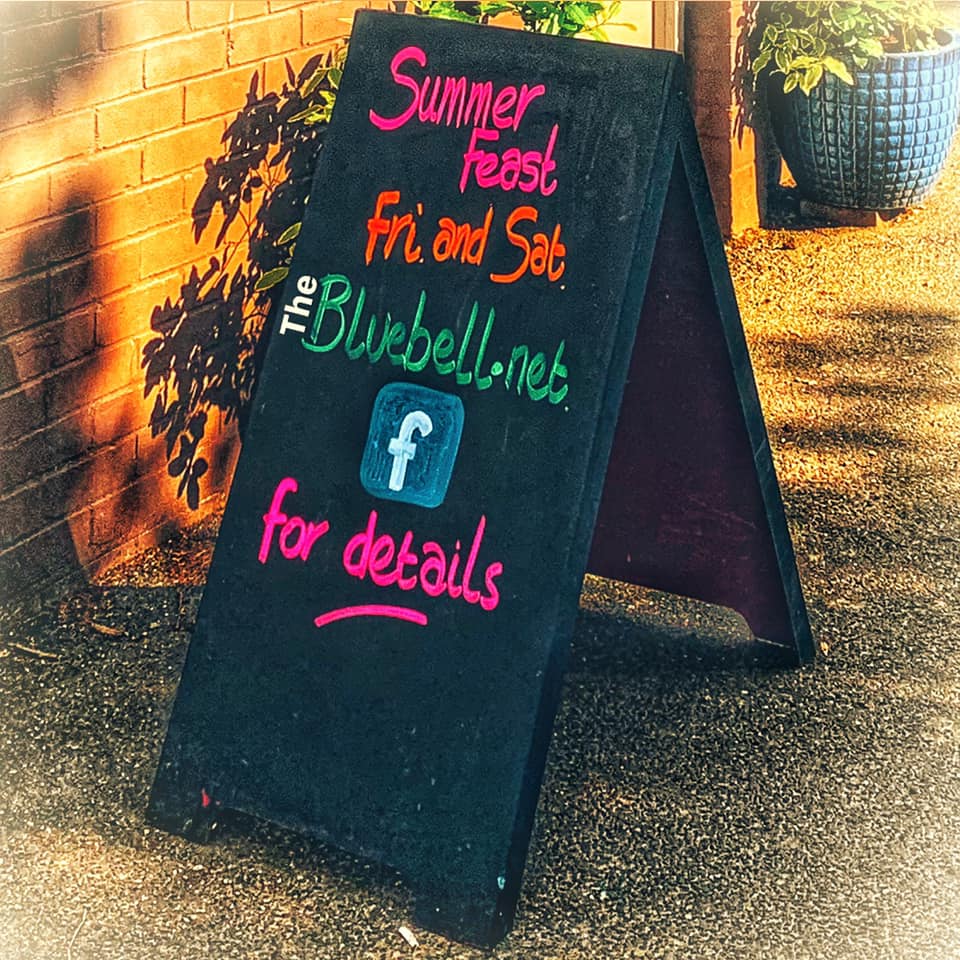 Summer
Feast
Fri. and Sat.
The Bluebell.net
f
for details